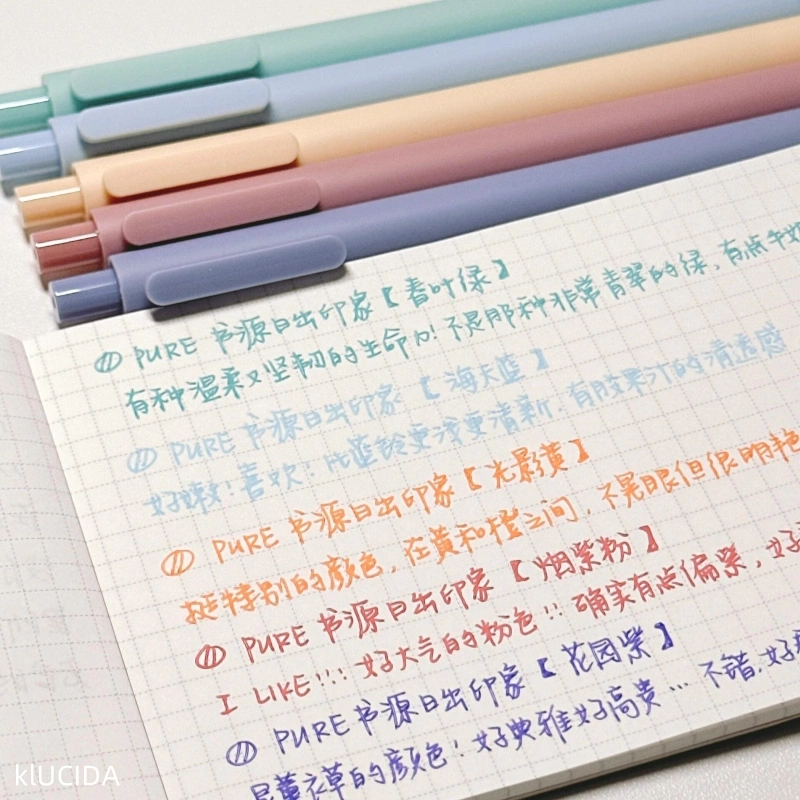 PURE 书源日出印象【春叶绿】
有种温柔又坚韧的生命力! 不是那种非常青翠的绿，有点
PURE 书源日出印象【海天蓝】
好嫩! 喜欢! 比蓝铃更浅更清新，有胶果汁的清透感
PURE 书源日出印象【光影黄】
挺特别的颜色，在黄和橙之间，不晃眼但很明艳
PURE 书源日出印象【烟紫粉】
I LIKE!!! 好大气的粉色!! 确实有点偏紫，好
PURE 书源日出印象【花园紫】
是薰衣草的颜色! 好典雅好高贵… 不错，好
klUCIDA